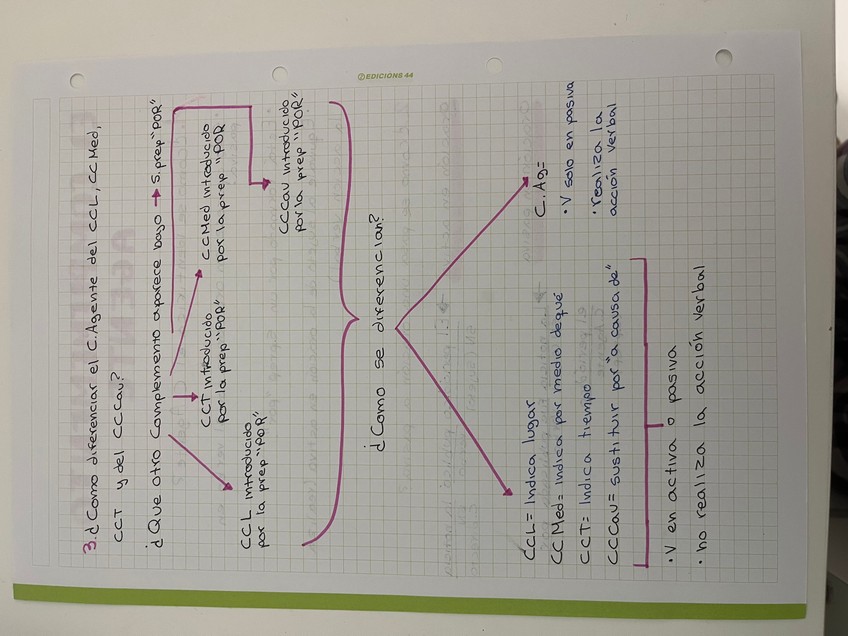 EDICIONS 44
3. ¿Como diferenciar el C.Agente del CCL, CCMed,
CCT y del CCCau?
¿Que otro Complemento aparece bajo → S.prep "POR"
CCL introducido
por la prep "POR"
CCT introducido
por la prep "POR"
CCMed introducido
por la prep "POR
CCCau introducido
por la prep "POR"
¿Como se diferencian?
CCL= Indica lugar
CCMed= Indica por medio de qué
CCT= Indica tiempo
CCCau= sustituir por "a causa de"
• V en activa o pasiva
• no realiza la acción verbal
C.Ag=
• V solo en pasiva
• realiza la
acción verbal